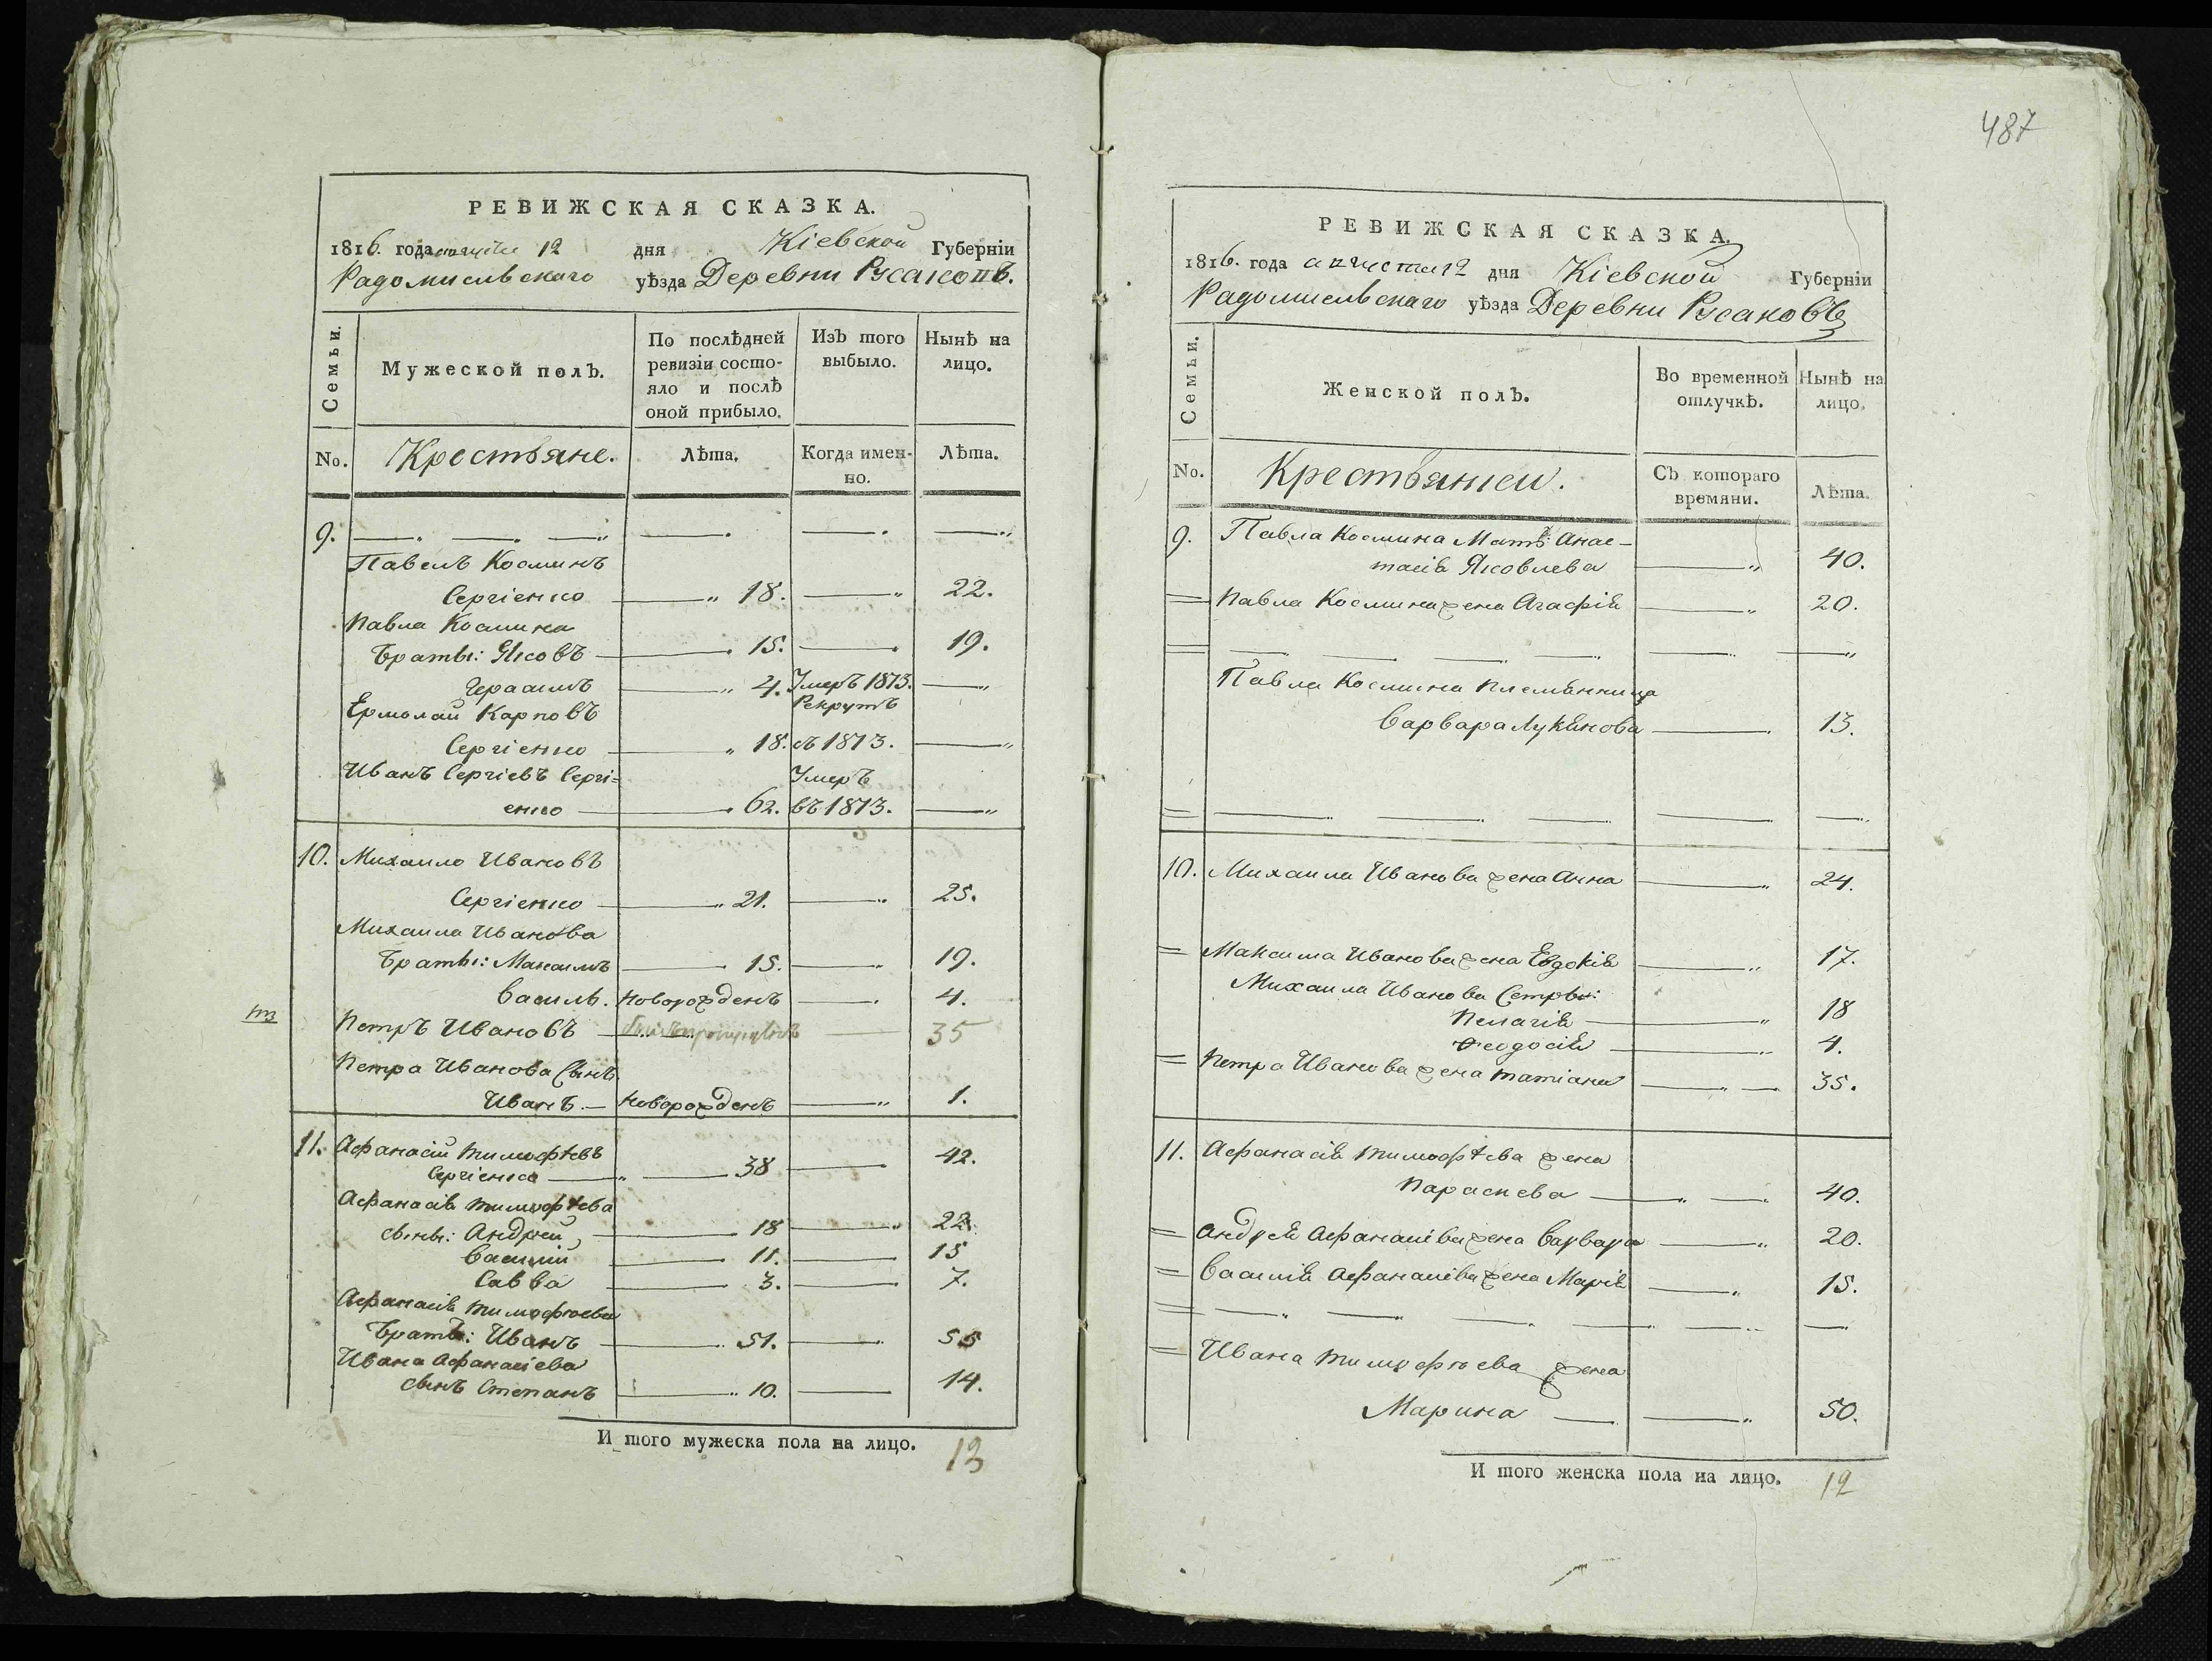 РЕВИЖСКАЯ СКАЗКА.
1816. года августа 12 дня Кіевской Губерніи
Радомисльскаго уѣзда Деревни Русаковъ.
Семьи. Мужеской полъ. По послѣдней ревизіи состояло и послѣ оной прибыло. Изъ того выбыло. Нынѣ на лицо.
No. Крестьяне. Лѣта. Когда именно. Лѣта.
9.
Павелъ Косминъ
Сергіенко 18. 22.
Павла Космина
Братьи: Яковъ 15. 19.
Герасимъ 4. Умеръ 1813.
Ермолай Карповъ Рекрутъ
Сергіенко 18. въ 1813.
Иванъ Сергіевъ Сергі= Умеръ
енко 62. въ 1813.
10. Михайло Ивановъ
Сергіенко 21. 25.
Михайла Иванова
Братьи: Максимъ 15. 19.
Василь. Новорожденъ 4.
Петръ Ивановъ 35
Петра Иванова Сынъ
Иванъ. Новорожденъ 1.
11. Афанасій Тимофѣевъ
Сергіенко 38 42.
Афанасія Тимофѣева
сыны: Андрей, 18 22.
Василій 11. 15
Савва 3. 7.
Афанасія Тимофѣева
Братъ: Иванъ 51. 55
Ивана Афанасіева
сынъ Степанъ 10. 14.
И того мужеска пола на лицо. 13
487
РЕВИЖСКАЯ СКАЗКА.
1816. года августа 12 дня Кіевской Губерніи
Радомисльскаго уѣзда Деревни Русаковъ
Семьи. Женской полъ. Во временной отлучкѣ. Нынѣ на лицо.
No. Крестьянки. Съ котораго времяни. Лѣта.
9. Павла Космина Мать: Анас-
тасія Яковлева 40.
Павла Космина жена Агафія 20.
Павла Космина племянница
Варвара Лукянова 13.
10. Михайла Иванова жена Анна 24.
Максима Иванова жена Евдокія 17.
Михайла Иванова Сестры:
Пелагія 18
Феодосія 4.
Петра Иванова жена Татіана 35.
11. Афанасія Тимофѣева жена
Параскева 40.
Андрея Афанасіева жена Варвара 20.
Василія Афанасіева жена Марія 15.
Ивана Тимофѣева жена
Марина 50.
И того женска пола на лицо. 12